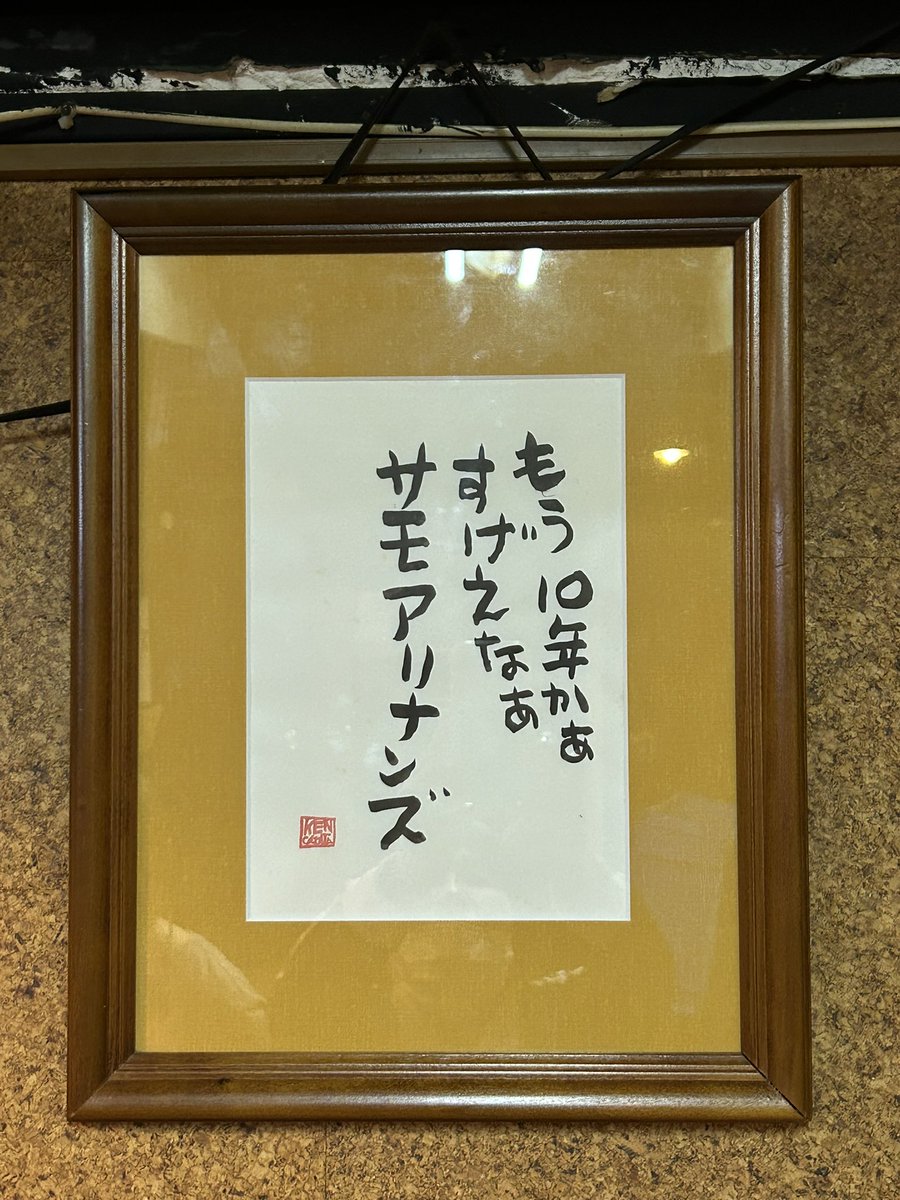 もう10年かぁ
すげえなぁ
サモアリナンズ
KEN